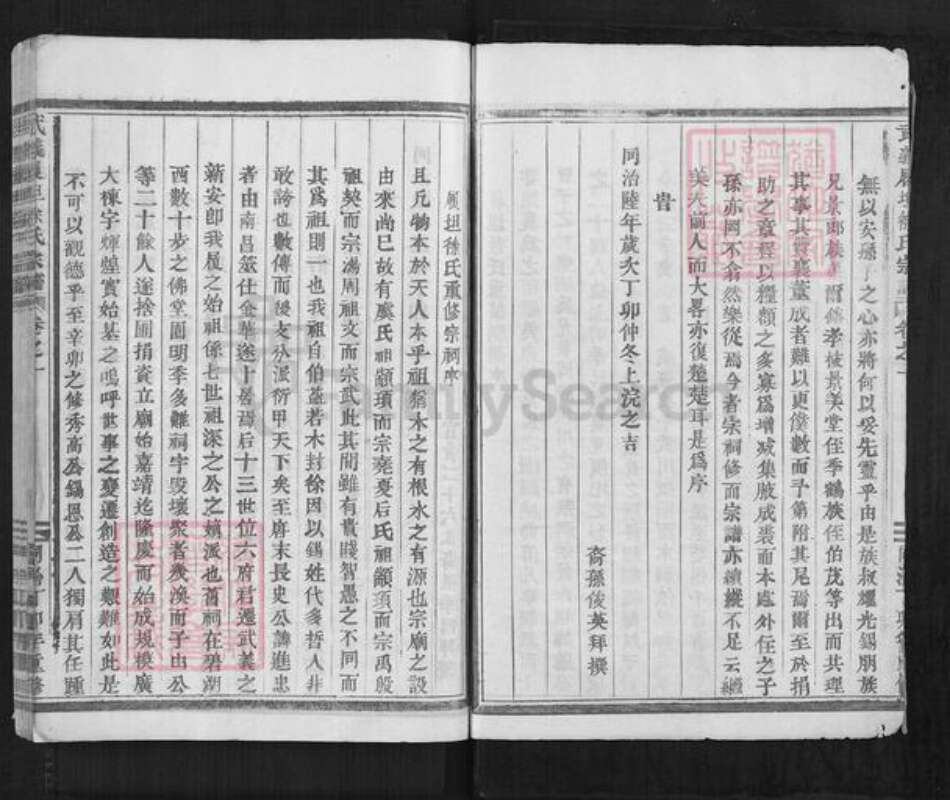 無以安孫子之心亦將何以妥先靈乎由是族叔燿光錫朋族
其事其贊襄董成者難以更僕數而予第附其尾焉爾至於捐
助之章程以糧額之多寡爲增减集腋成裘而本處外任之子
孫亦罔不翕然樂從焉今者宗祠修而宗譜亦續縱不足云繼
美
前人而大畧亦復楚楚耳是爲序
旹
同治陸年歲次丁卯仲冬上浣之吉
裔孫俊英拜撰
履坦徐氏重修宗祠序
且凡物本於天人本乎祖猶木之有根水之有源也宗廟之設
由來尚巳故有虞氏祖顓頊而宗堯夏后氏祖顓頊而宗禹殷
祖契而宗湯周祖文而宗武此其間雖有貴賤智愚之不同而
其爲祖則一也我祖自伯益若木封徐因以錫姓代多哲人非
敢誇也數傳而後支分派衍甲天下矣至唐末長史公諱進忠
者由南昌筮仕金華遂卜居焉后十三世位六府君遷武義之
新安卽我履之始祖係七世祖深之公之嫡派也舊祠在碧湖
西數十步之佛堂園明季多難祠宇毀壞聚者幾渙而子由公
等二十餘人遂捨囿捐資立廟始嘉靖迄隆慶而始成規模廣
大棟宇輝煌實始基之嗚呼世事之變遷創造之艱難如此是
不可以觀德乎至辛卯之修秀高公錫恩公二人獨肩其任踵